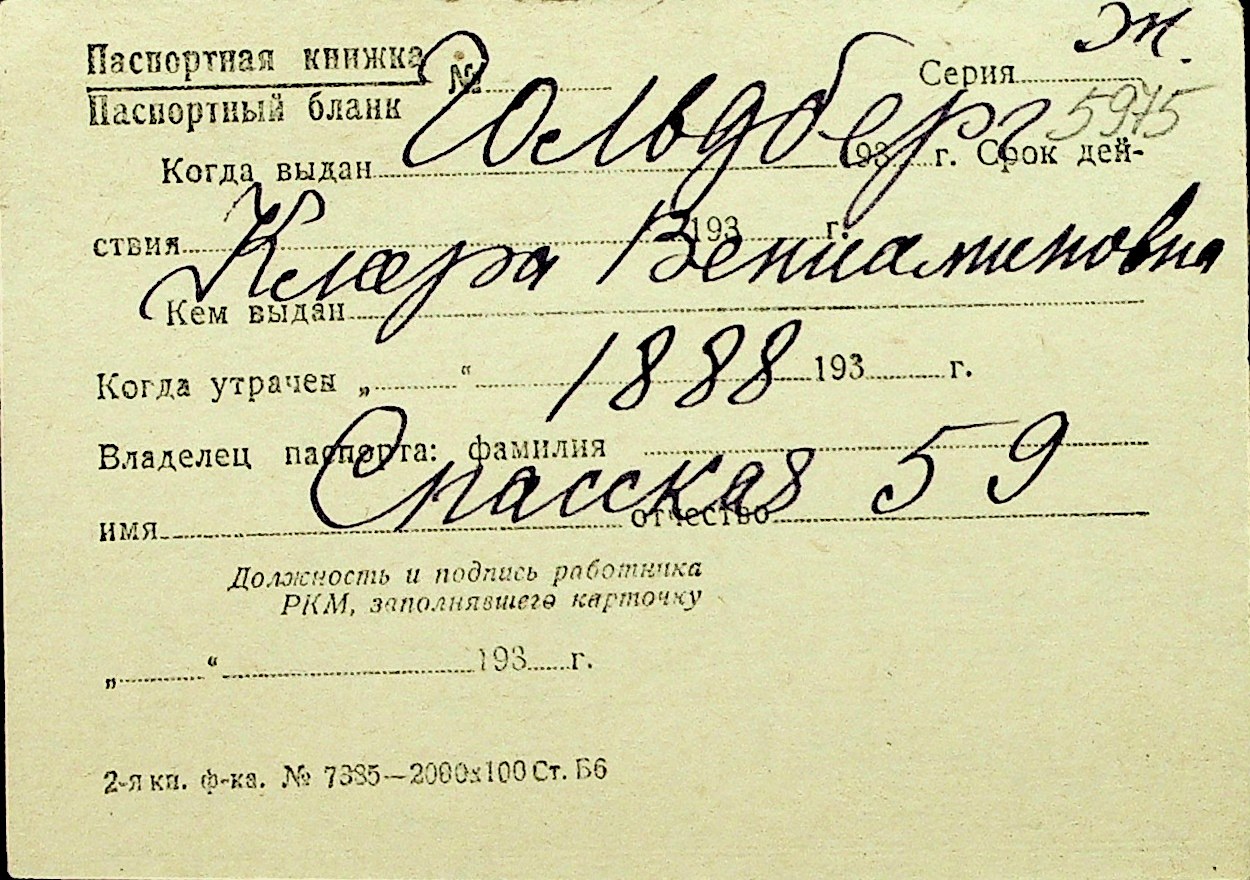 эк.
Паспортная книжка № Серия
Паспортный бланк
Гольдберг 5975
Когда выдан 193 г. Срок дей-
ствия 193 г.
Клара Вениаминовна
Кем выдан
Когда утрачен „ “ 193 г.
1888
Владелец паспорта: фамилия
Спасская 59
имя отчество
Должность и подпись работника
РКМ, заполнявшего карточку
„ “ 193 г.
2-я кн. ф-ка. № 7385—2000х100 Ст. Б6